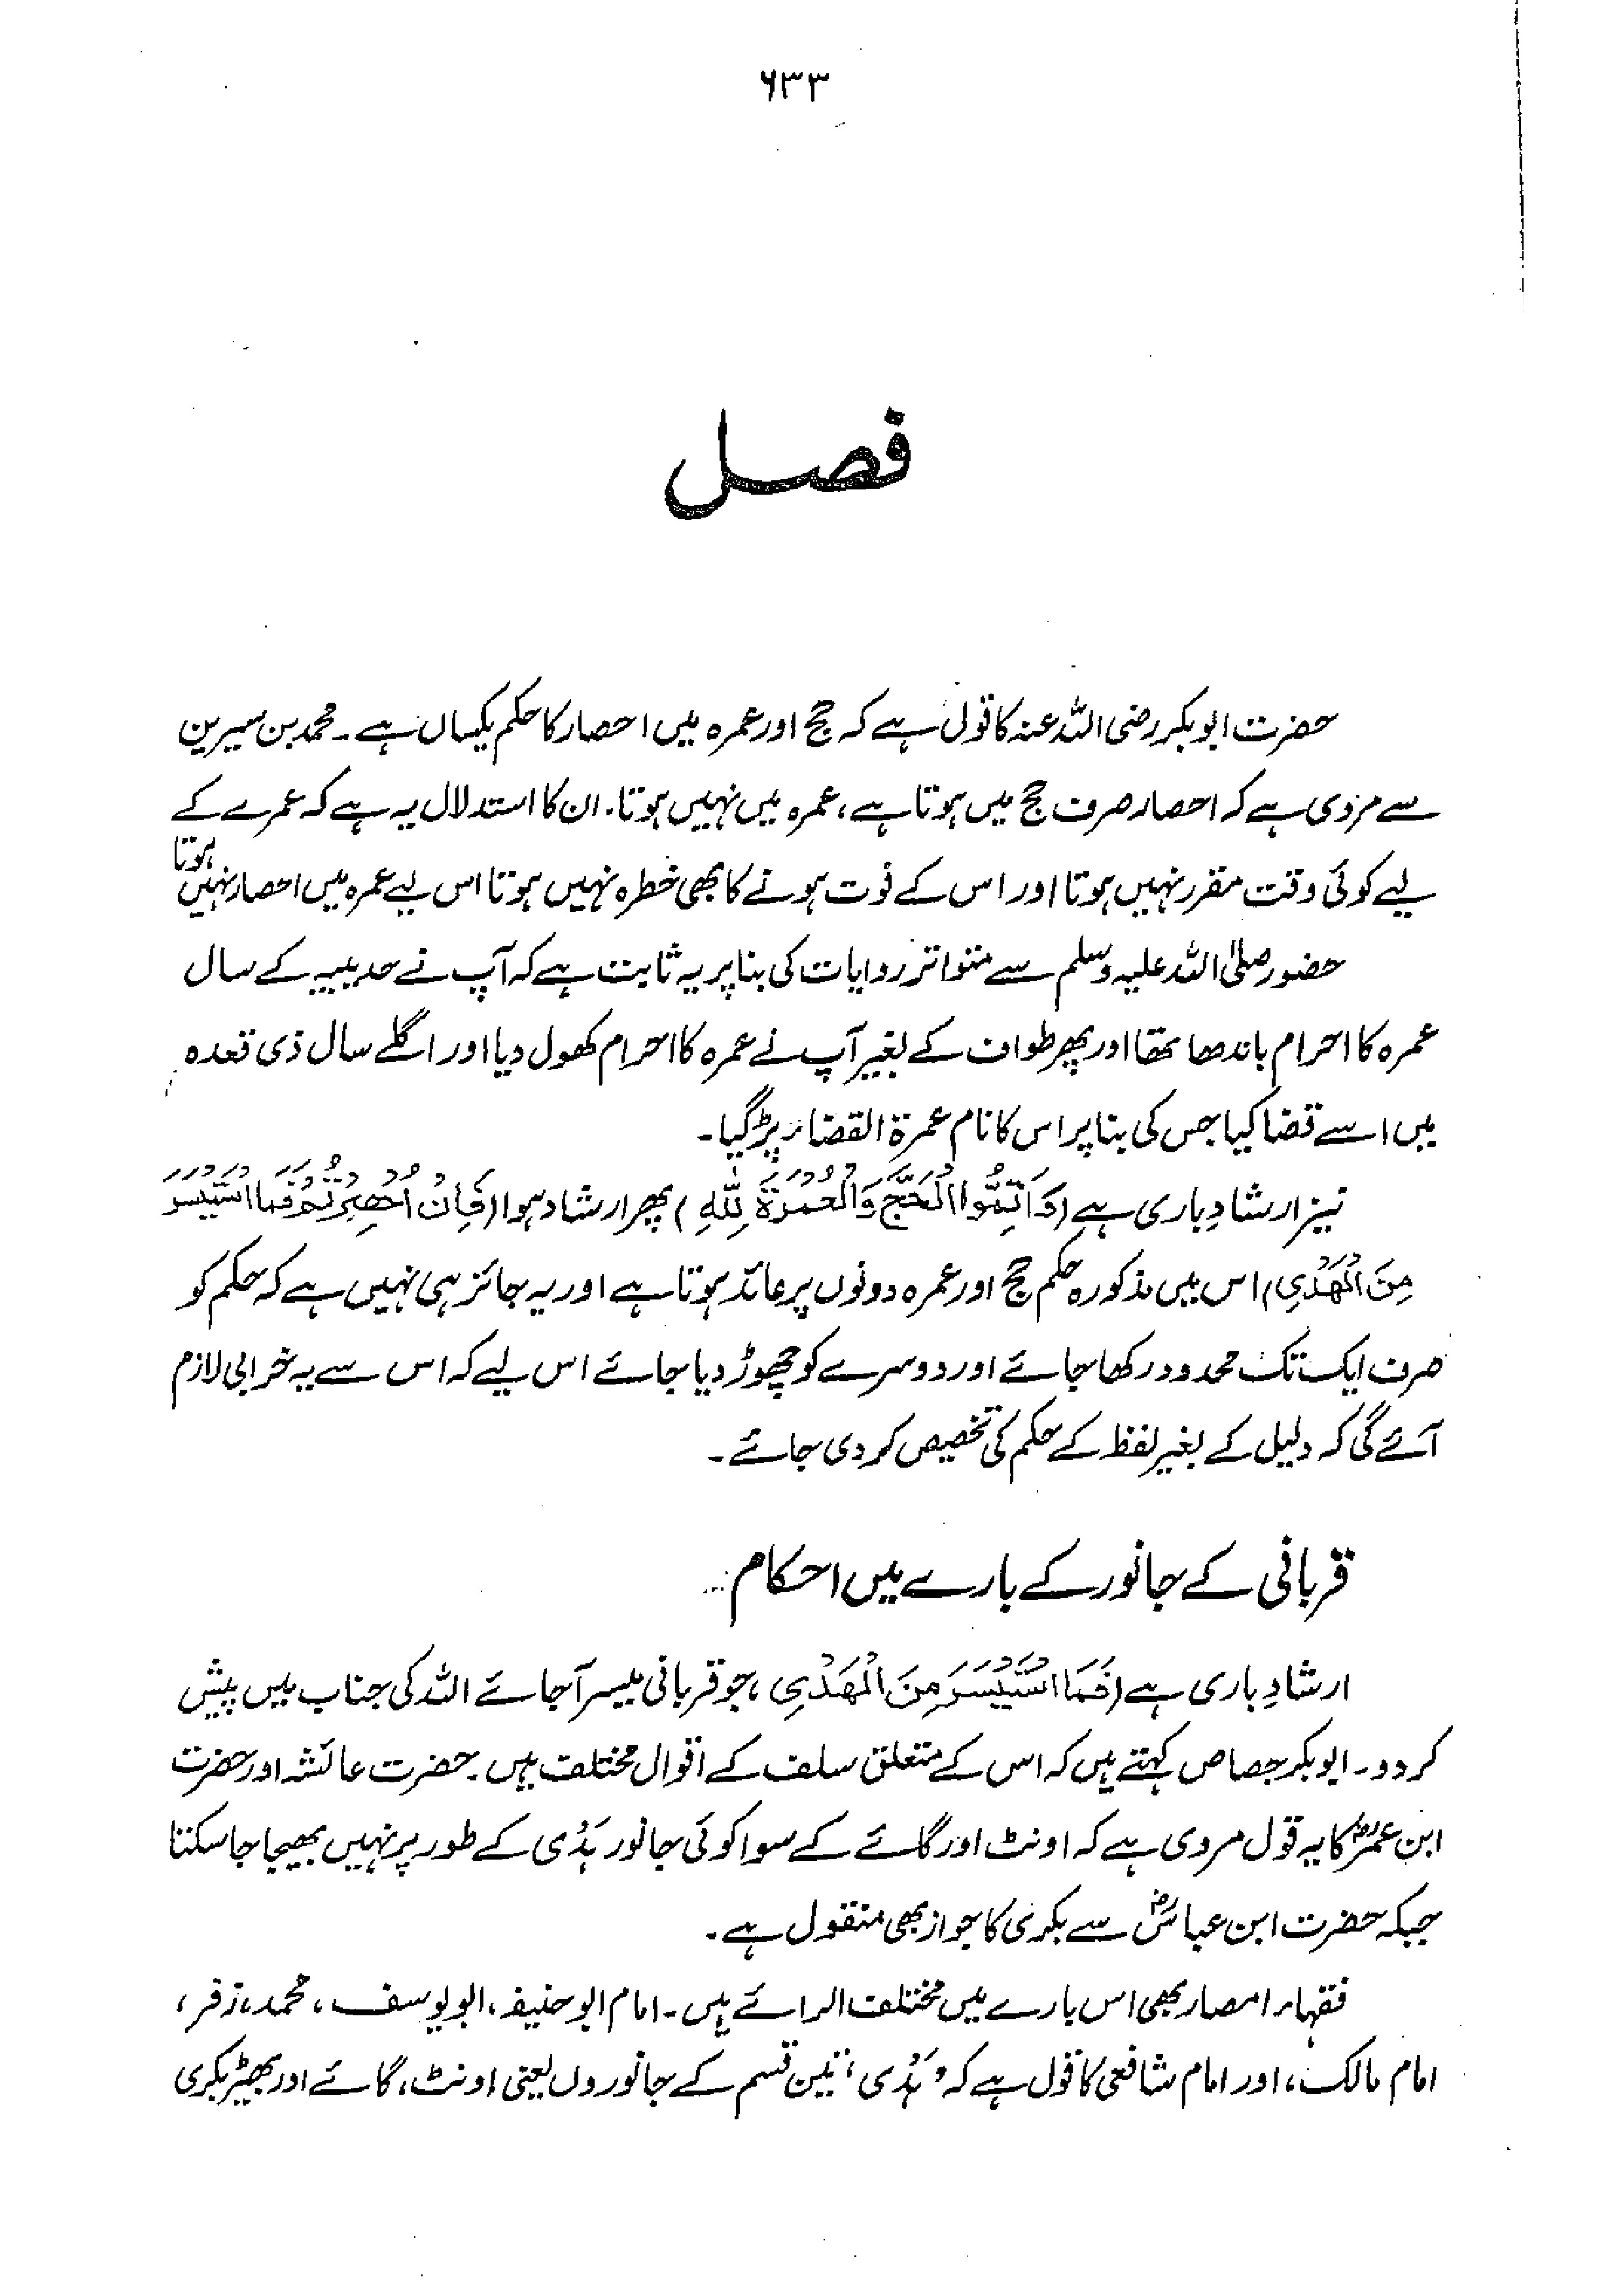 ۶۳۳
فصل
حضرت ابوبکر رضی اللہ عنہ کا قول ہے کہ حج اور عمرہ میں احصار کا حکم یکساں ہے۔ محمد بن سیرین
سے مروی ہے کہ احصار صرف حج میں ہوتا ہے، عمرہ میں نہیں ہوتا۔ ان کا استدلال یہ ہے کہ عمرے کے
لیے کوئی وقت مقرر نہیں ہوتا اور اس کے فوت ہونے کا بھی خطرہ نہیں ہوتا اس لیے عمرہ میں احصار نہیں ہوتا
حضور صلی اللہ علیہ وسلم سے متواتر روایات کی بنا پر یہ ثابت ہے کہ آپ نے حدیبیہ کے سال
عمرہ کا احرام باندھا تھا اور پھر طواف کے بغیر آپ نے عمرہ کا احرام کھول دیا اور اگلے سال ذی قعدہ
میں اسے قضا کیا جس کی بنا پر اس کا نام عمرۃ القضاء پڑ گیا۔
نیز ارشادِ باری ہے (وَاَتِمُّوا الْحَجَّ وَالْعُمْرَةَ لِلّٰهِ) پھر ارشاد ہوا (فَاِنْ اُحْصِرْتُمْ فَمَا اسْتَيْسَرَ
مِنَ الْهَدْيِ) اس میں مذکورہ حکم حج اور عمرہ دونوں پر عائد ہوتا ہے اور یہ جائز ہی نہیں ہے کہ حکم کو
صرف ایک تک محدود رکھا جائے اور دوسرے کو چھوڑ دیا جائے اس لیے کہ اس سے یہ خرابی لازم
آئے گی کہ دلیل کے بغیر لفظ کے حکم کی تخصیص کر دی جائے۔
قربانی کے جانور کے بارے میں احکام
ارشادِ باری ہے (فَمَا اسْتَيْسَرَ مِنَ الْهَدْيِ، جو قربانی میسر آجائے اللہ کی جناب میں پیش
کر دو۔ ابوبکر جصاص کہتے ہیں کہ اس کے متعلق سلف کے اقوال مختلف ہیں۔ حضرت عائشہ اور حضرت
ابن عمرؓ کا یہ قول مروی ہے کہ اونٹ اور گائے کے سوا کوئی جانور ہَدْی کے طور پر نہیں بھیجا جا سکتا
جبکہ حضرت ابن عباسؓ سے بکری کا جواز بھی منقول ہے۔
فقہاء امصار بھی اس بارے میں مختلف الرائے ہیں۔ امام ابوحنیفہ، ابویوسف، محمد، زفر،
امام مالک، اور امام شافعی کا قول ہے کہ ’ہَدْی‘ تین قسم کے جانوروں یعنی اونٹ، گائے اور بھیڑ بکری